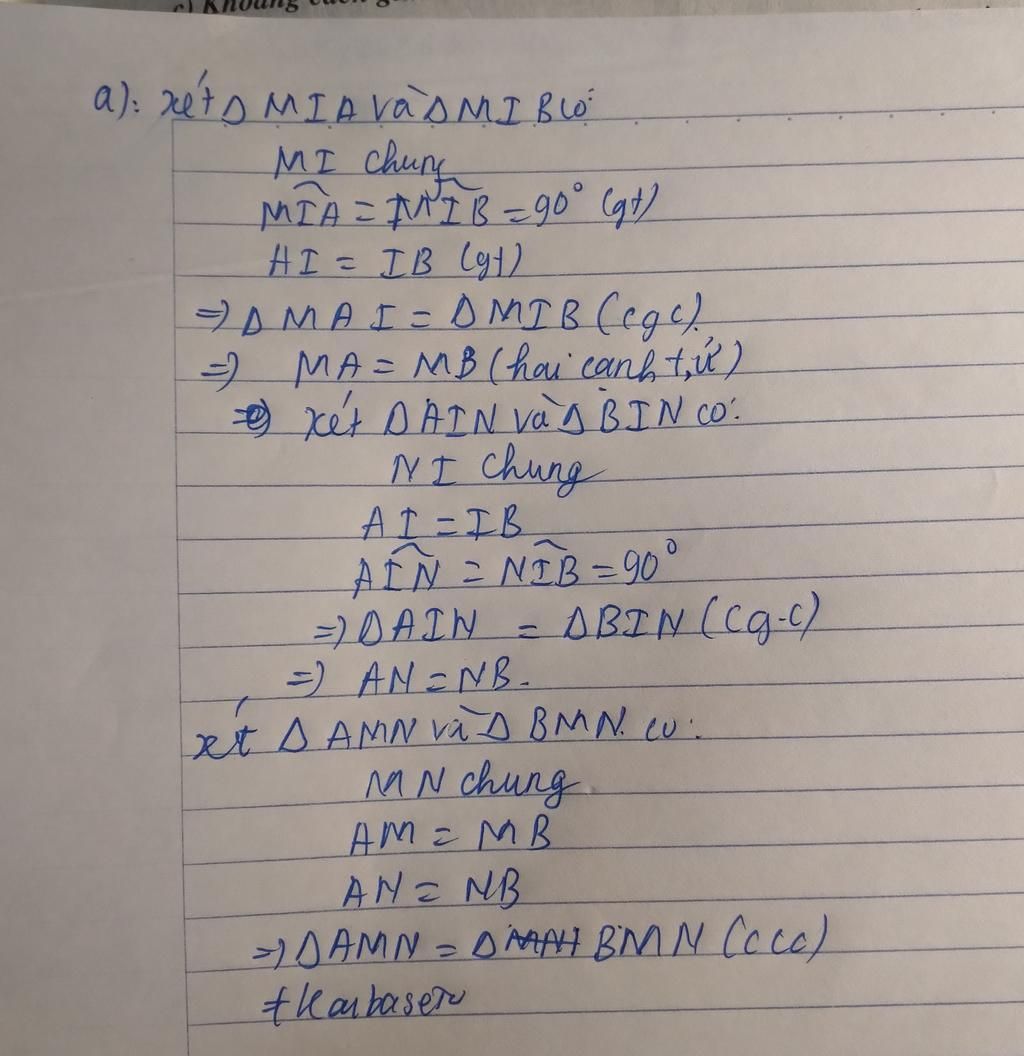 c) Khoảng cách g
a): xét Δ MIA và Δ MIB có:
MI chung
MIA = MIB = 90° (gt)
AI = IB (gt)
=) Δ MAI = Δ MIB (cgc)
=) MA = MB (hai cạnh t,ứ)
=) xét Δ AIN và Δ BIN có:
NI chung
AI = IB
AIN = NIB = 90°
=) Δ AIN = Δ BIN (cg-c)
=) AN = NB.
xét Δ AMN và Δ BMN có:
MN chung
AM = MB
AN = NB
=) Δ AMN = Δ BMN (ccc)